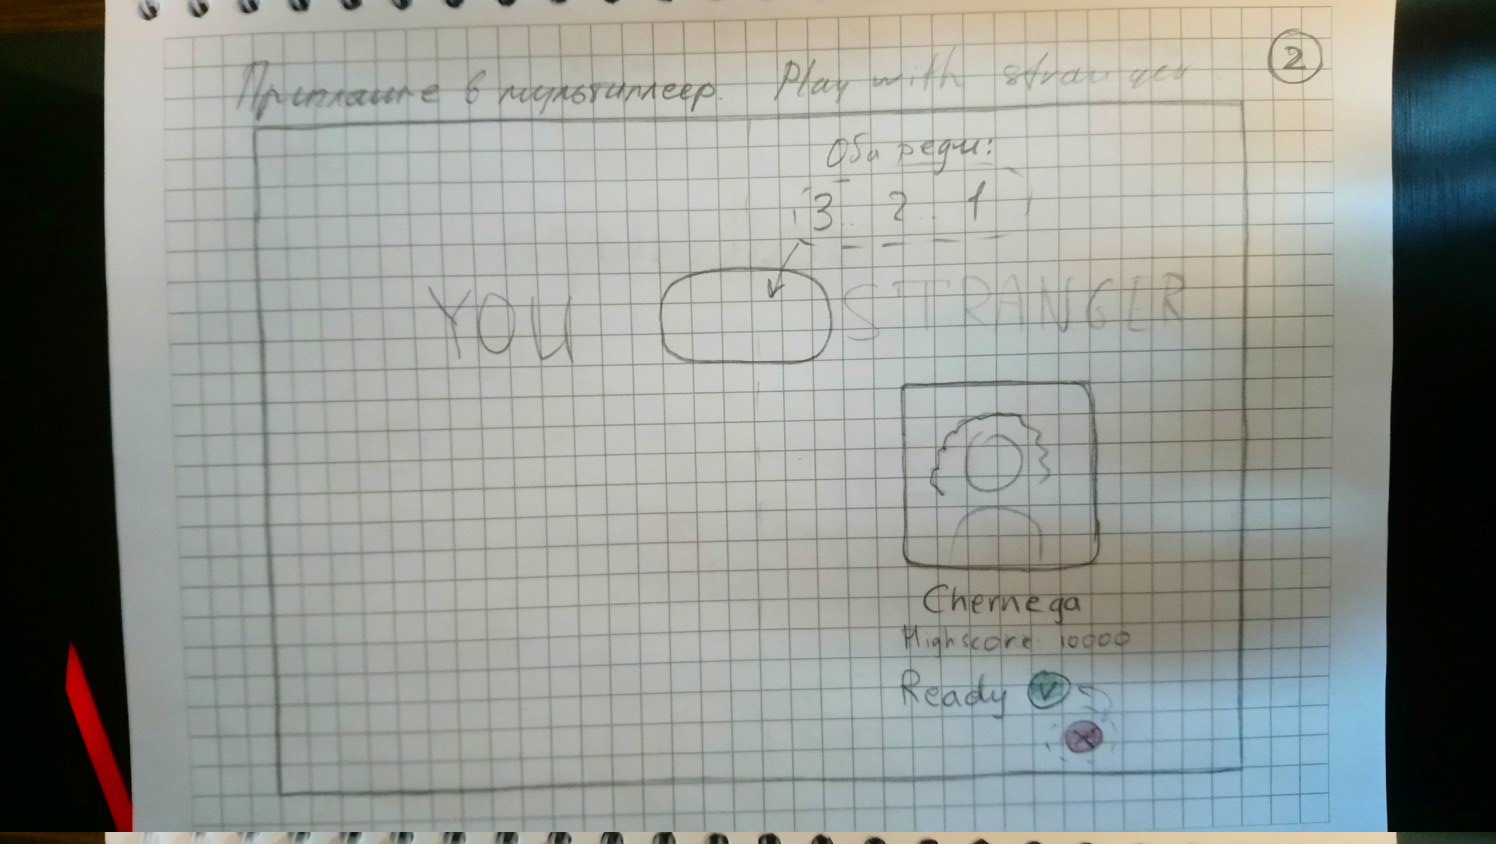 2
Приглашение в мультиплеер. Play with stranger
Оба реди:
3 .. 2 .. 1
YOU STRANGER
Chernega
Highscore: 10000
Ready V
X